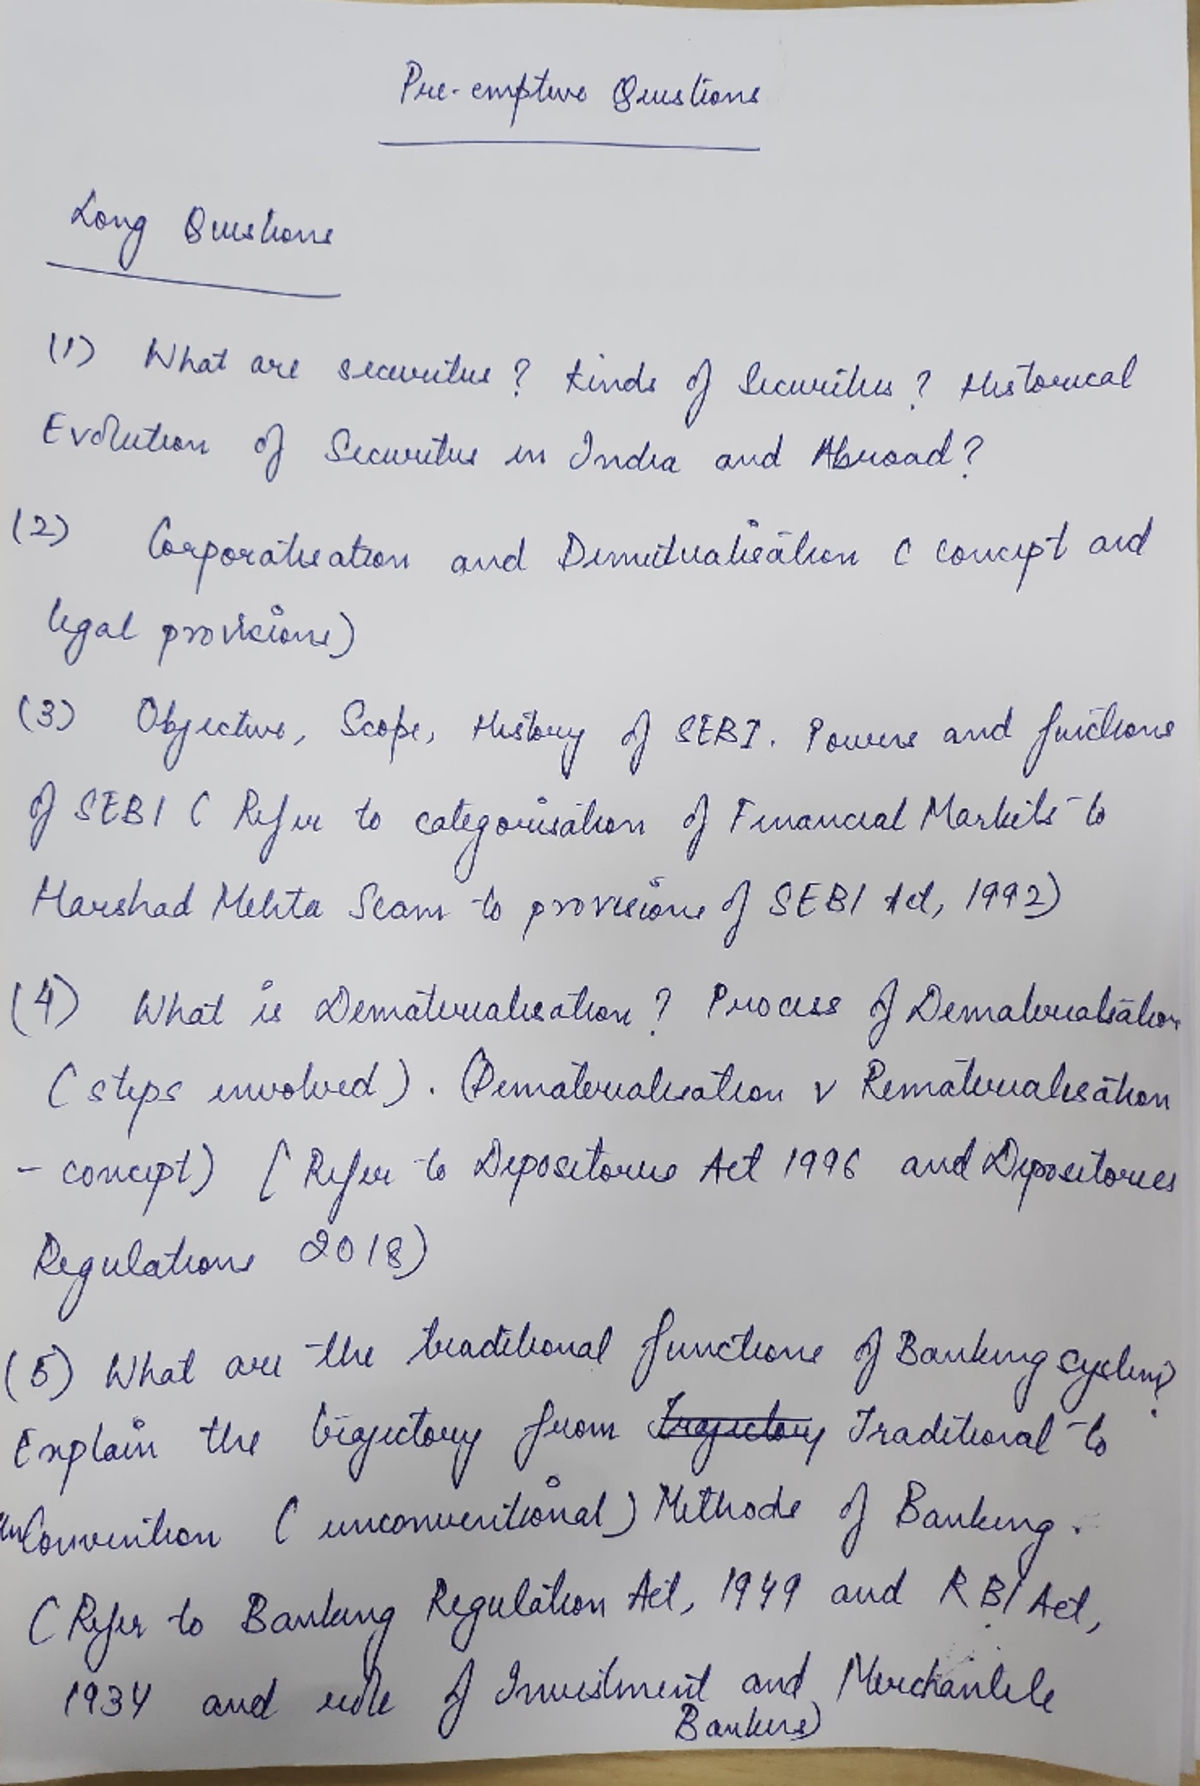 Pre-emptive Questions
Long Questions
(1) What are securities? Kinds of Securities? Historical
Evolution of Securities in India and Abroad?
(2) Corporatisation and Demutualisation ( concept and
legal provisions)
(3) Objective, Scope, History of SEBI. Powers and functions
of SEBI ( Refer to categorisation of Financial Markets to
Harshad Mehta Scam to provisions of SEBI Act, 1992)
(4) What is Dematerialisation? Process of Dematerialisation
( steps involved). (Dematerialisation v Rematerialisation
- concept) ( Refer to Depositories Act 1996 and Depositories
Regulations 2018)
(5) What are the traditional functions of Banking system?
Explain the trajectory from Trajectory Traditional to
UnConvention ( unconventional) Methods of Banking.
( Refer to Banking Regulation Act, 1949 and RBI Act,
1934 and role of Investment and Merchantile
Bankers)